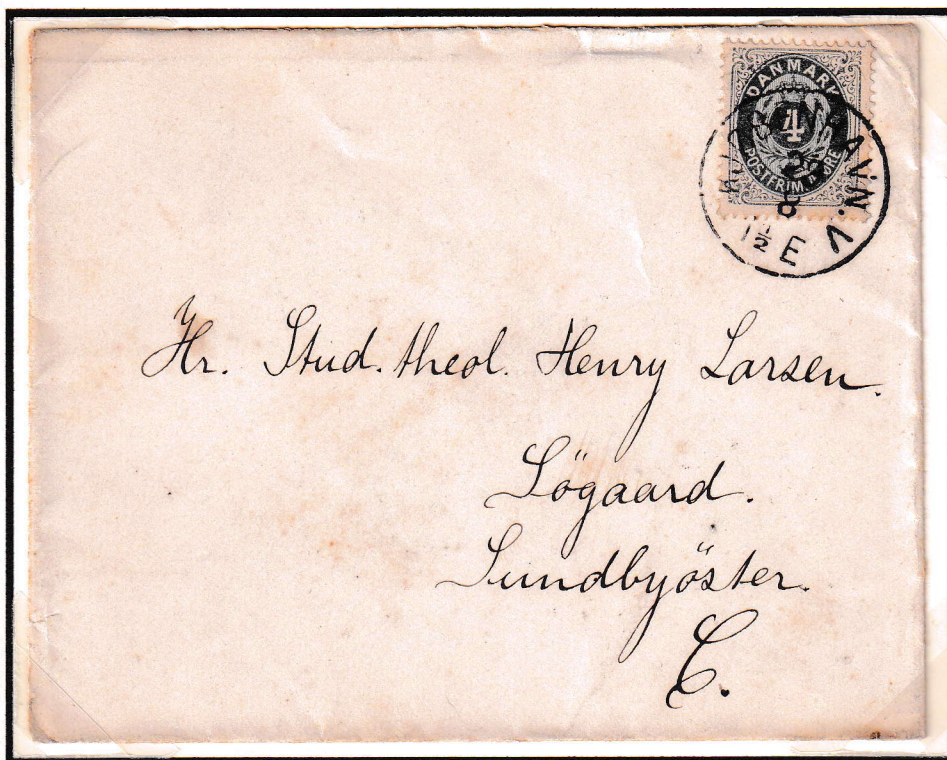 DANMARK
4
POSTFRIM. ØRE
KJØBENHAVN. V.
1½ E
Hr. Stud. theol. Henry Larsen.
Lögaard.
Sundbyöster.
C.